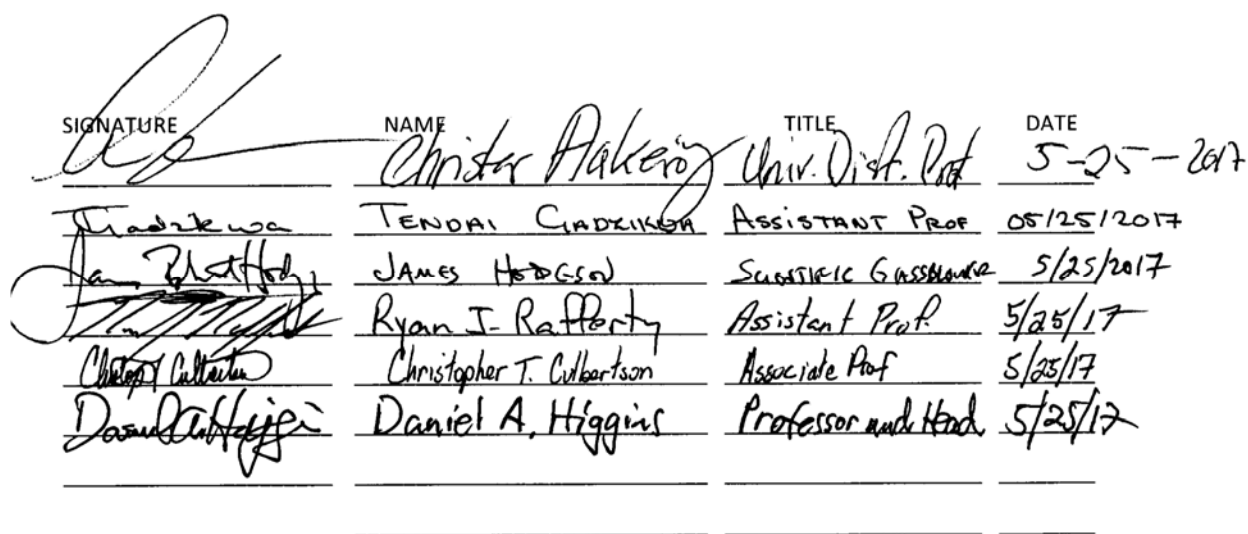 SIGNATURE NAME TITLE DATE
Christer Aakeröy Univ. Dist. Prof 5-25-2017
TGadzikwa TENDAI GADZIKWA ASSISTANT PROF 05/25/2017
James HODGSON SCIENTIFIC GLASSBLOWER 5/25/2017
Ryan J. Rafferty Assistant Prof. 5/25/17
Christopher T. Culbertson Associate Prof 5/25/17
Daniel A. Higgins Professor and Head 5/25/17